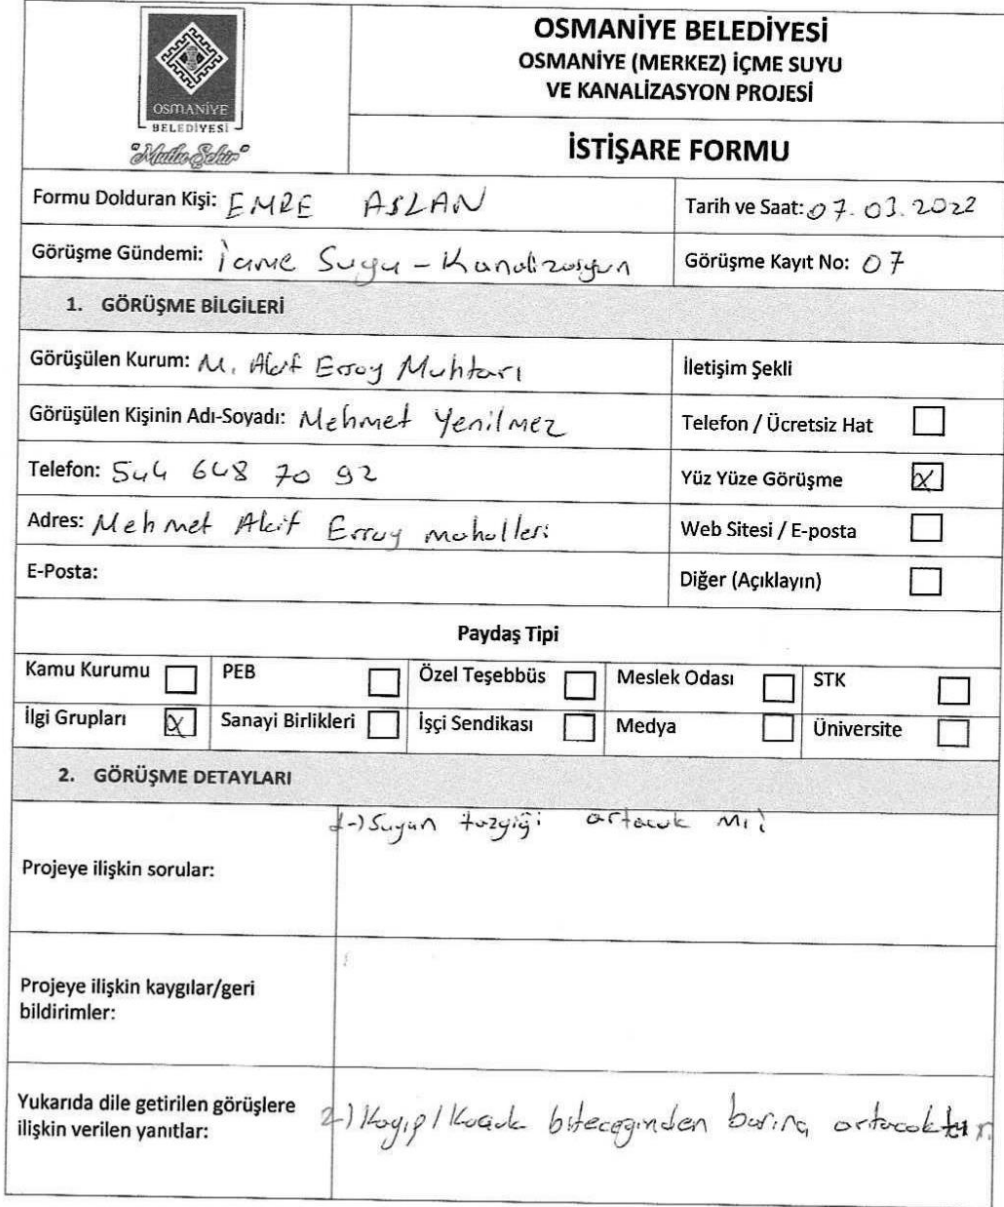 OSMANİYE
BELEDİYESİ
"Mutlu Şehir"
OSMANİYE BELEDİYESİ
OSMANİYE (MERKEZ) İÇME SUYU
VE KANALİZASYON PROJESİ
İSTİŞARE FORMU
Formu Dolduran Kişi: EMRE ASLAN
Tarih ve Saat: 07.03.2022
Görüşme Gündemi: İçme Suyu - Kanalizasyon
Görüşme Kayıt No: 07
1. GÖRÜŞME BİLGİLERİ
Görüşülen Kurum: M. Akif Ersoy Muhtarı
İletişim Şekli
Görüşülen Kişinin Adı-Soyadı: Mehmet Yenilmez
Telefon / Ücretsiz Hat
Telefon: 544 648 70 92
Yüz Yüze Görüşme X
Adres: Mehmet Akif Ersoy mahallesi
Web Sitesi / E-posta
E-Posta:
Diğer (Açıklayın)
Paydaş Tipi
Kamu Kurumu PEB Özel Teşebbüs Meslek Odası STK
İlgi Grupları X Sanayi Birlikleri İşçi Sendikası Medya Üniversite
2. GÖRÜŞME DETAYLARI
Projeye ilişkin sorular:
1-) Suyun tazyiği artacak mı?
Projeye ilişkin kaygılar/geri
bildirimler:
Yukarıda dile getirilen görüşlere
ilişkin verilen yanıtlar:
2-) Kayıp/Kaçak biteceğinden basınç artacaktır.